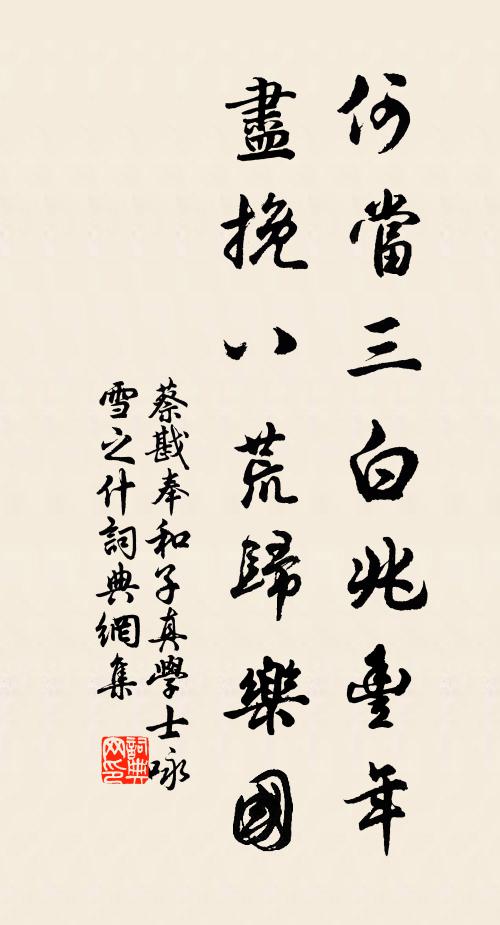 何當三白兆豐年
盡挽八荒歸樂國
蔡戡奉和子真學士咏
雪之什詞典網集
詞典网印